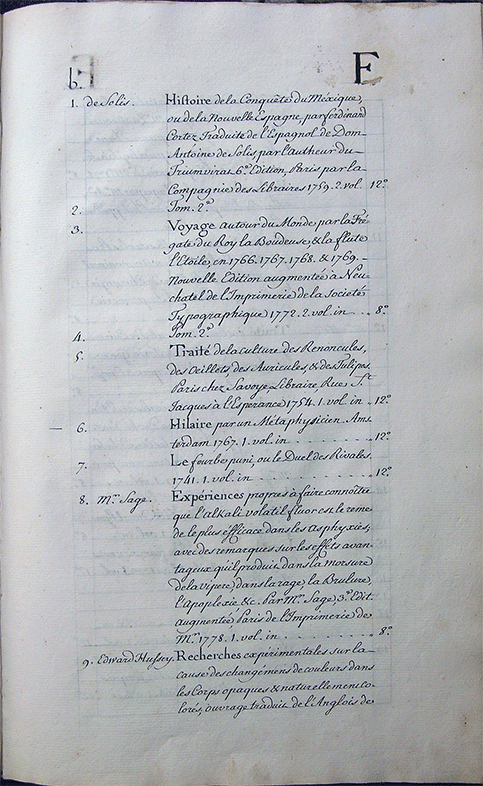 F
b.
1. de Solis. Histoire de la Conquête du Méxique,
ou de la Nouvelle Espagne, par ferdinand
Cortez Traduite de l'Espagnol de Dom
Antoine de Solis par l'autheur du
Triumvirat 6.e Edition, Paris par la
Compagnie des Libraires 1759. 2. vol. 12.o
2. Tom. 2.o
3. Voyage autour du Monde par la Fré-
gate du Roy la Boudeuse, & la flute
l'Etoile, en 1766. 1767. 1768. & 1769. –
Nouvelle Edition augmentée à Neu-
chatel de l'Imprimerie de la Societé
Typographique 1772. 2. vol. in . . . 8.o
4. Tom. 2.o
5. Traité de la culture des Renoncules,
des Œillets, des Auricules, & des Tulipes.
Paris chez Savoye Libraire Rue S.t
Jacques à l'Esperance 1754. 1. vol. in . 12.o
6. Hilaire par un Métaphysicien. Ams
terdam 1767. 1. vol. in . . . . . . . 12.o
7. Le fourbe puni, ou le Duel des Rivales.
1741. 1. vol. in . . . . . . . . . . 12.o
8. M.r Sage. Expériences propres à faire connoître
que l'alkali volatil fluor est le reme
de le plus éfficace dans les asphyxies;
avec des remarques sur les effets avan
tageux qu'il produit dans la morsure
de la vipere, dans la rage, la Brulure,
l'Apoplexie, &c. Par M.r Sage, 3.e Edit.
augmentée Paris de l'Imprimerie de
M.r 1778. 1. vol. in . . . . . . . . . 8.o
9. Edward Hussey. Recherches expérimentales sur la
cause des changémens de couleurs dans
les Corps opaques & naturellement co-
lorés, ouvrage traduit de l'Anglois de